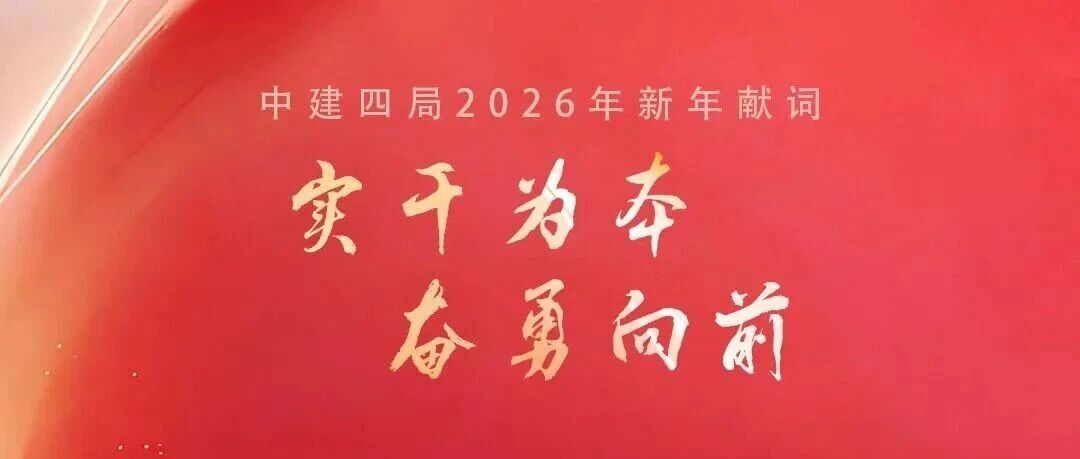 中建四局2026年新年献词
实干为本
奋勇向前